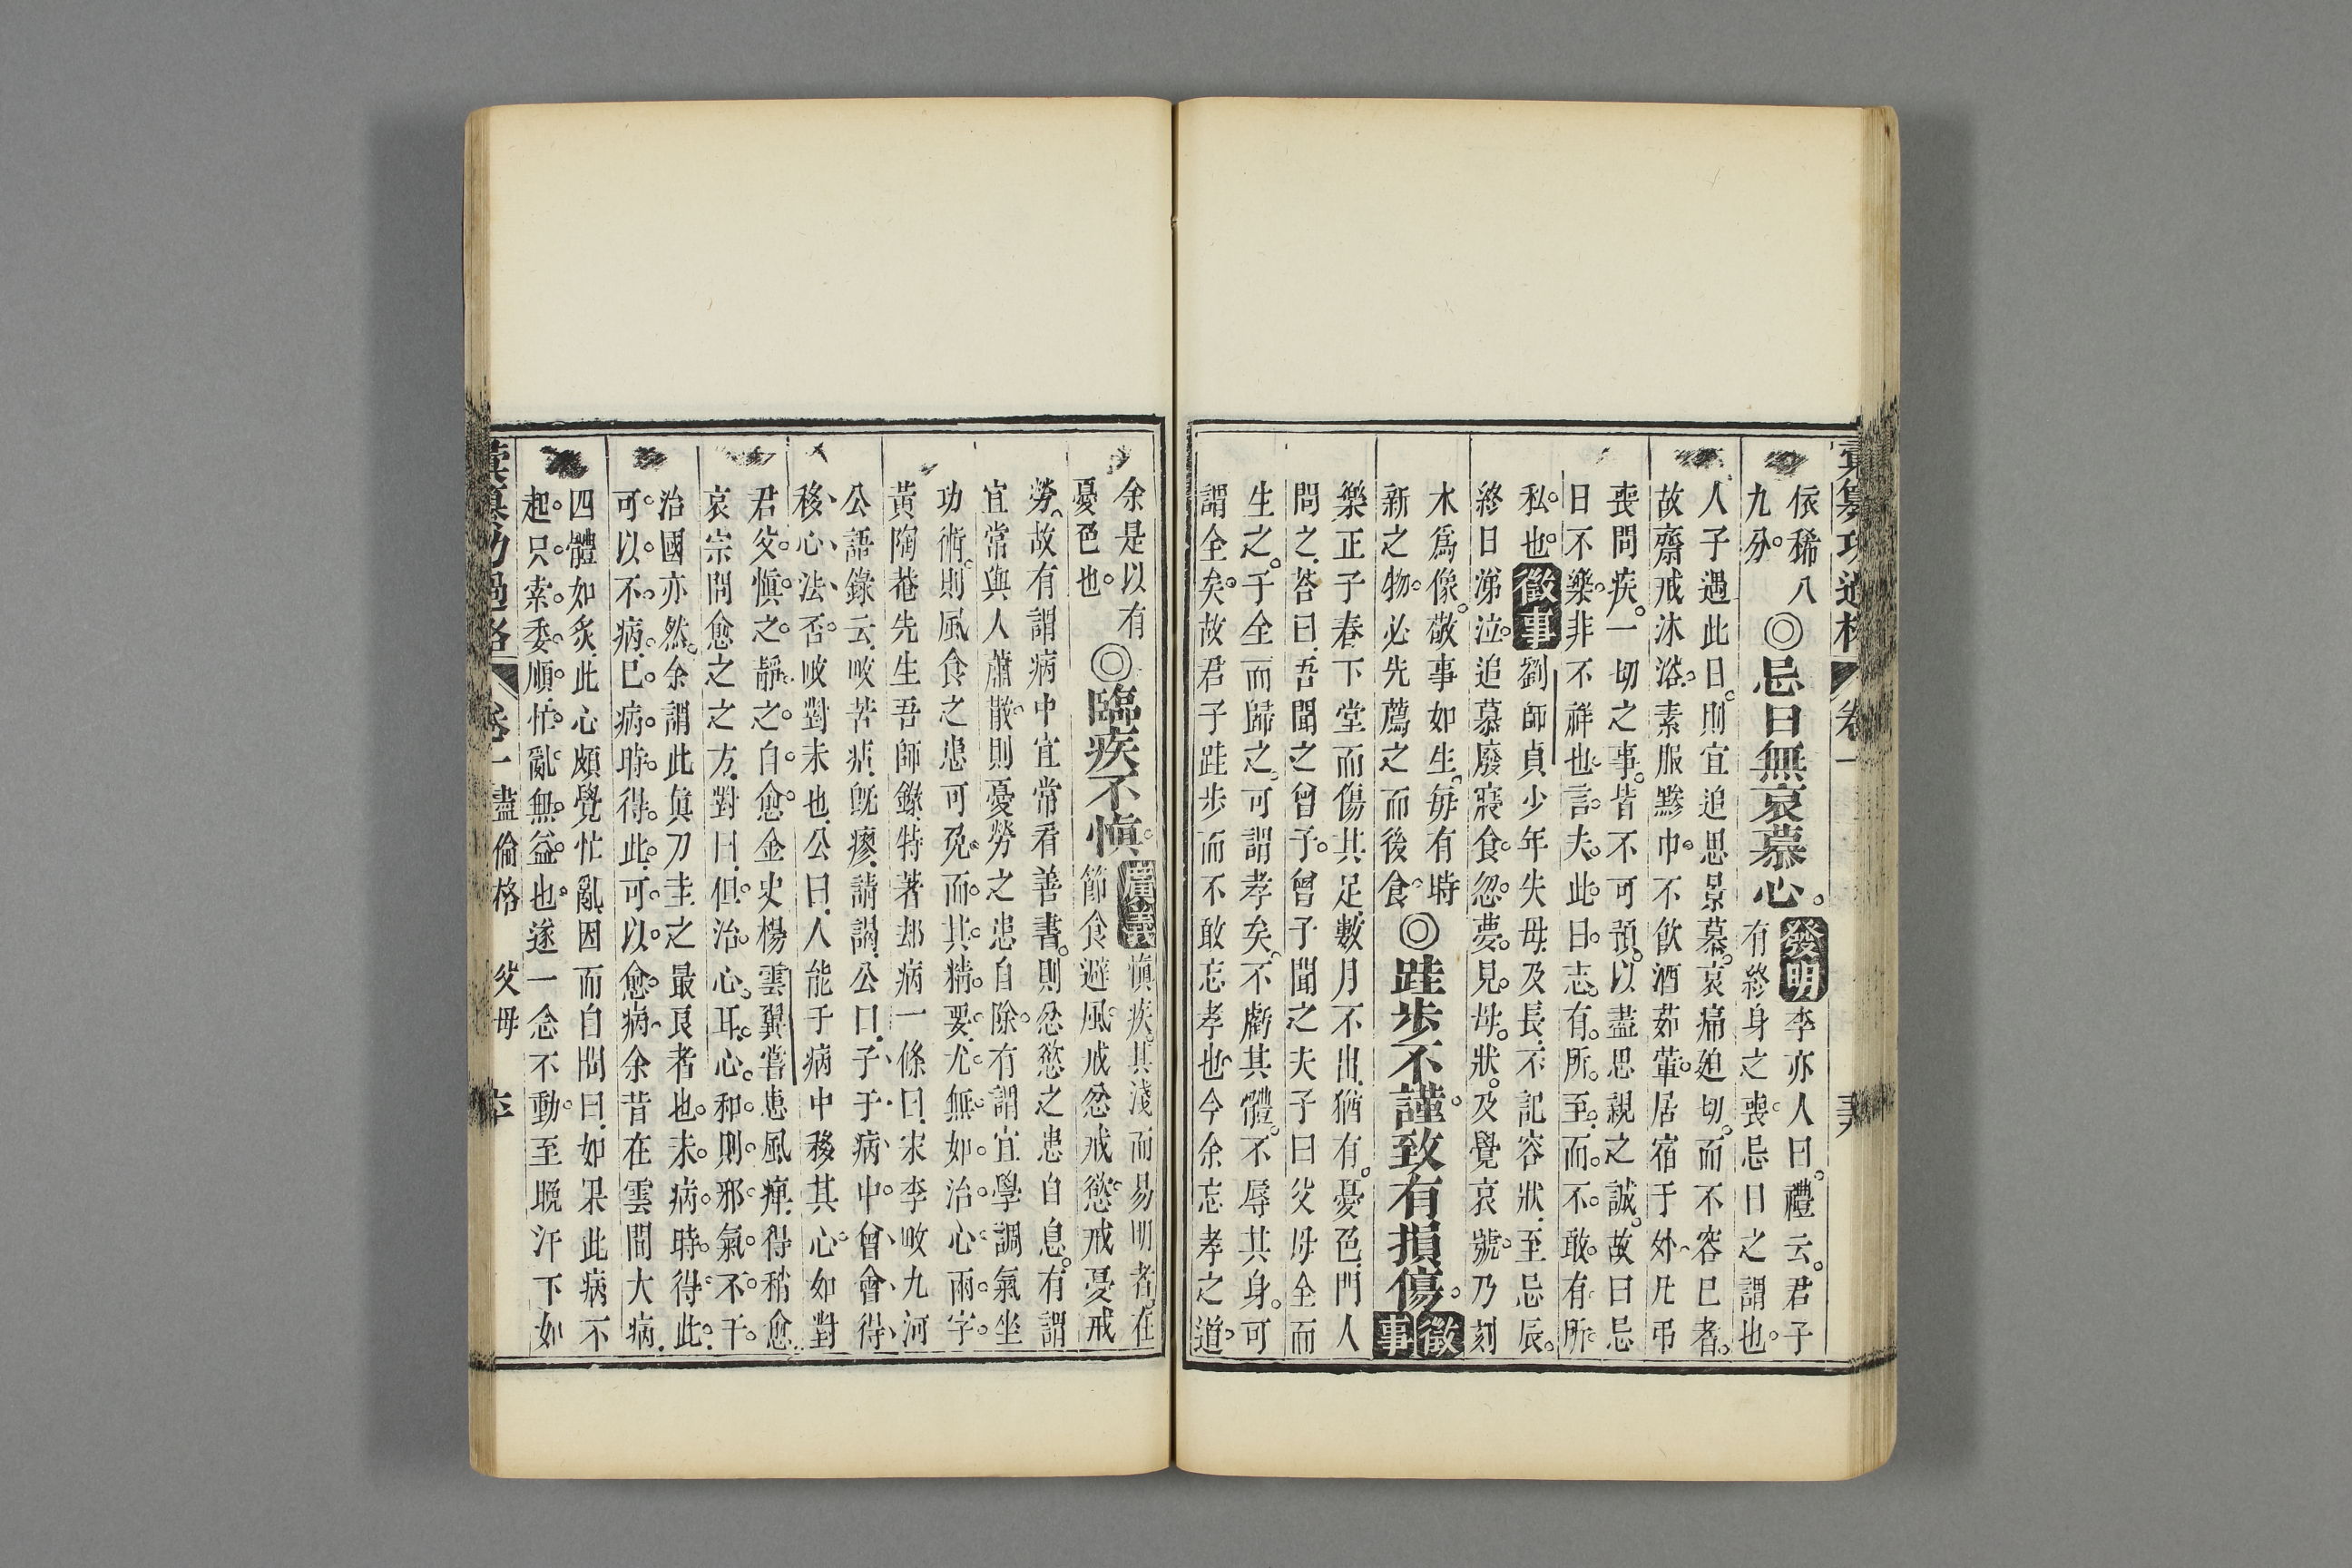 彙纂功過格
卷一
依稀八
九分。
◎忌日無哀慕心。
發明
李亦人曰。禮云。君子
有終身之喪。忌日之謂也。
人子遇此日。則宜追思景慕。哀痛迫切。而不容已者。
故齋戒沐浴。素服黲巾。不飲酒茹葷。居宿于外。凡弔
喪問疾。一切之事。皆不可預。以盡思親之誠。故曰忌
日不樂。非不祥也。言夫此日志有所至。而不敢有所
私也。徵事劉師貞少年失母。及長。不記容狀。至忌辰。
終日涕泣。追慕廢寢食。忽夢見母狀。及覺哀號。乃刻
木爲像。敬事如生。每有時
新之物。必先薦之而後食。
◎跬步不謹。致有損傷。
徵事
樂正子春下堂而傷其足。數月不出。猶有憂色。門人
問之。荅曰。吾聞之曾子。曾子聞之夫子曰。父母全而
生之。子全而歸之。可謂孝矣。不虧其體。不辱其身。可
謂全矣。故君子跬步而不敢忘孝也。今余忘孝之道。
余是以有
憂色也。
◎臨疾不慎。
廣義
慎疾。其淺而易明者。在
節食避風。戒忿戒慾戒憂戒
勞。故有謂病中宜常看善書。則忿慾之患自息。有謂
宜常與人蕭散。則憂勞之患自除。有謂宜學調氣坐
功術。則風食之患可免。而其精要。尤無如治心兩字。
黃陶菴先生吾師錄。特著却病一條曰。宋李畋九河
公語錄云。畋苦痁。旣瘳。請謁。公曰。子于病中。曾會得
移心法否。畋對未也。公曰。人能于病中移其心。如對
君父。慎之靜之。自愈。金史楊雲翼嘗患風痺。得稍愈。
哀宗問愈之之方。對曰。但治心耳。心和則邪氣不干。
治國亦然。余謂此眞刀圭之最良者也。未病時得此。
可以不病。已病時得此。可以愈病。余昔在雲間大病。
四體如炙。此心頗覺忙亂。因而自問曰。如果此病不
起。只索委順。忙亂無益也。遂一念不動。至晚汗下如
彙纂功過格
卷一
盡倫格
父母